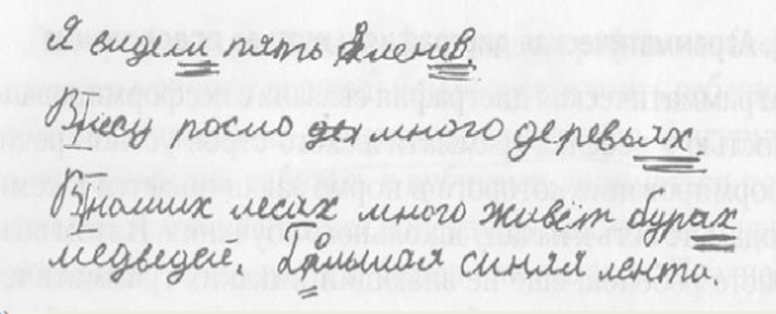 Я видем пять оленев.
Влесу росло много деревих.
Внаших лесах много живёт бурах
медведей. Большая синяя лента.